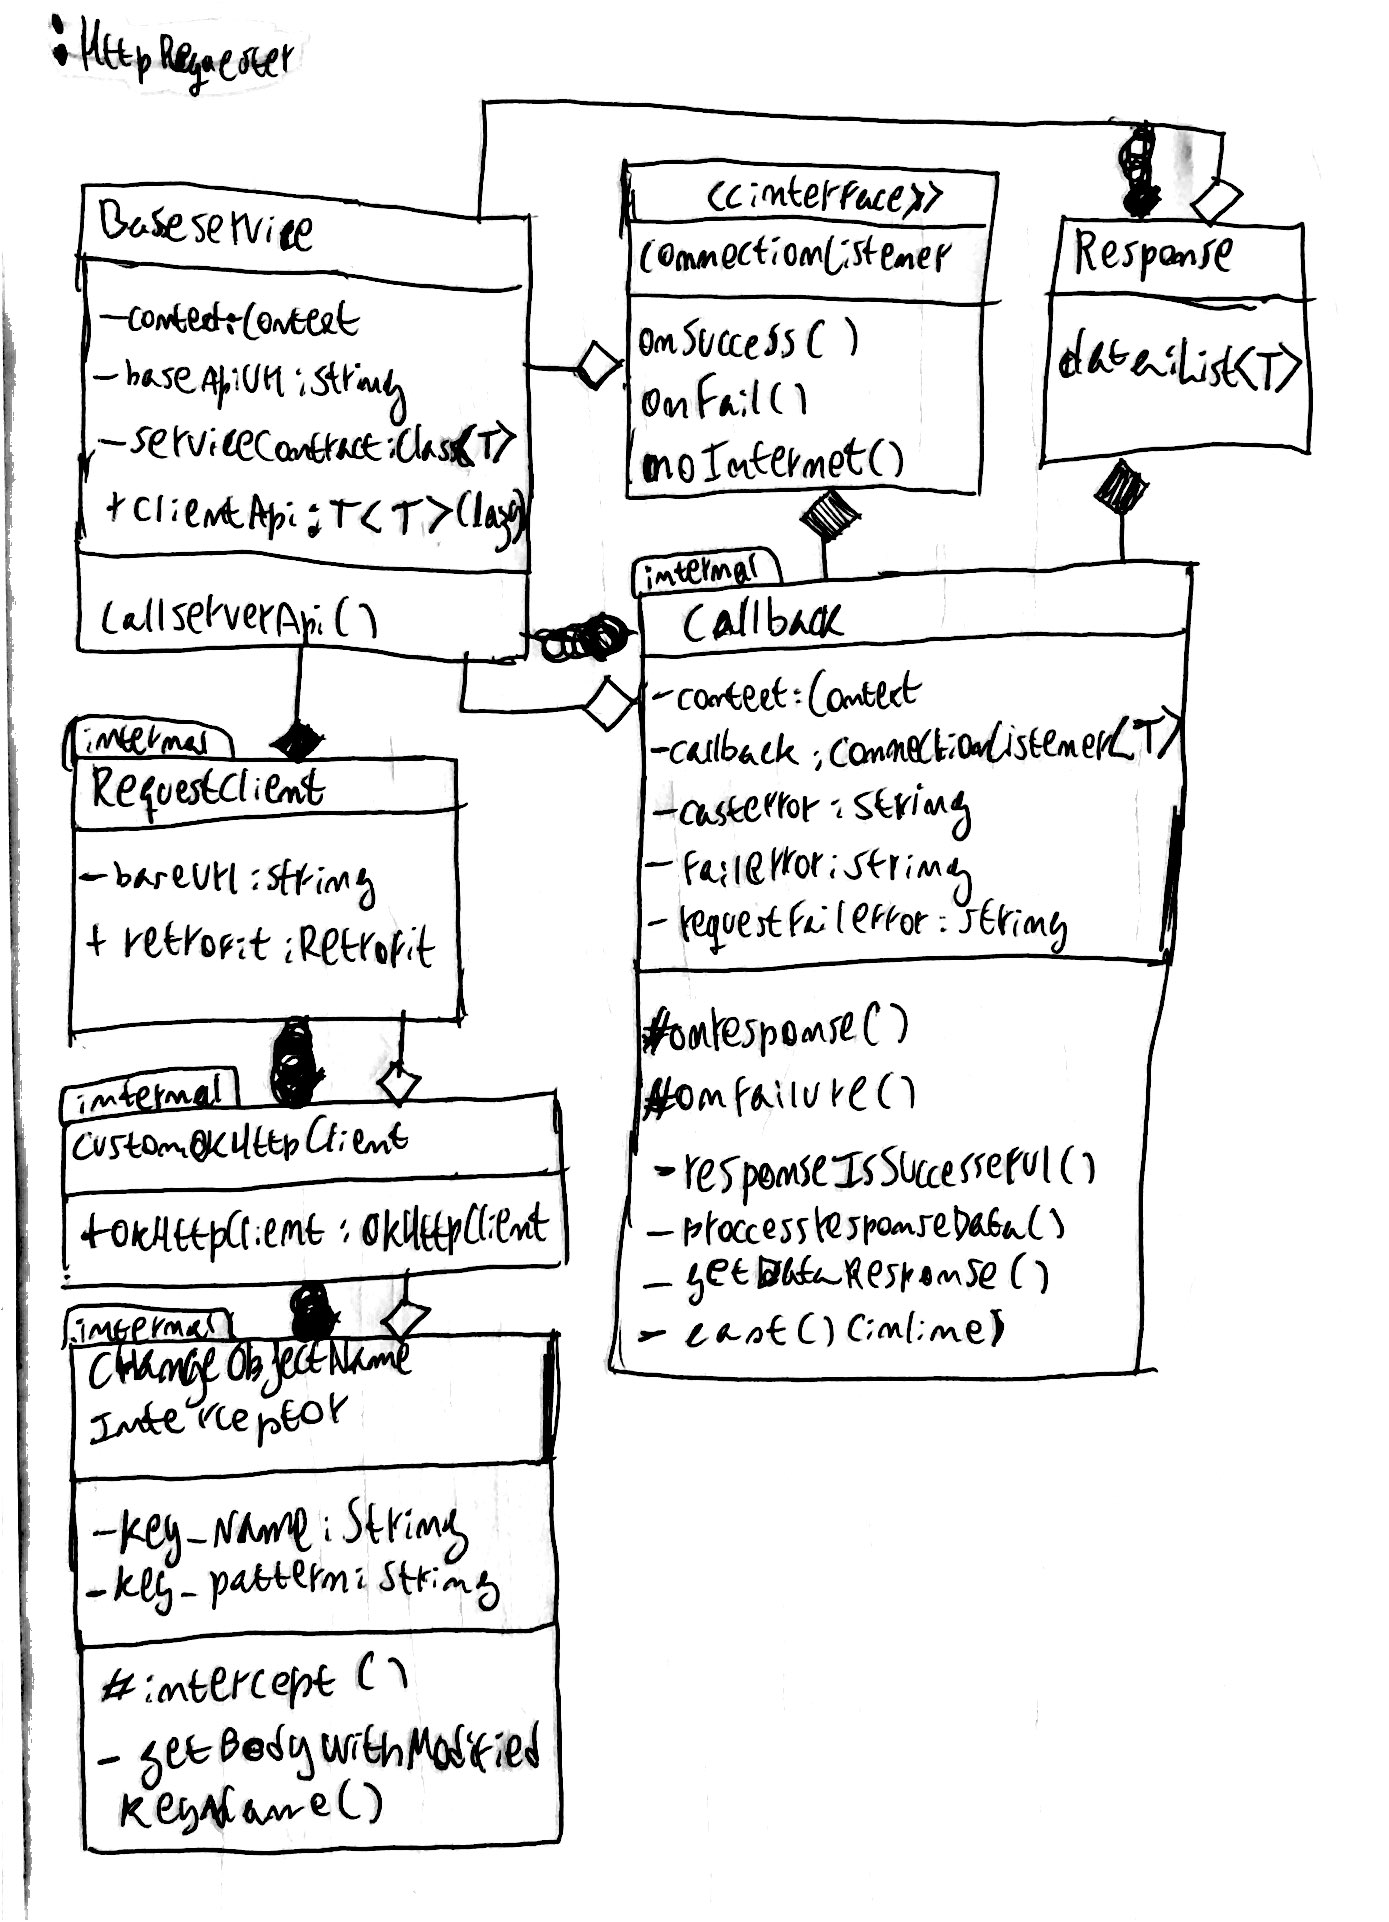 : HttpRequester
BaseService
-context:Context
-baseApiUrl:String
-serviceContract:Class<T>
+ClientApi:T<T>(lazy)
CallserverApi()
<<interface>>
ConnectionListener
onSuccess()
onFail()
noInternet()
Response
data:List<T>
internal
Callback
-context:Context
-callback:ConnectionListener<T>
-casterror:String
-failerror:String
-requestfailerror:String
#onresponse()
#onfailure()
-responseIsSuccesseful()
-proccessresponseData()
-getDataResponse()
-cast()(inline)
internal
RequestClient
-baseUrl:String
+retrofit:Retrofit
internal
CustomOkHttpClient
+okHttpClient:OkHttpClient
internal
ChangeObjectName
Interceptor
-key_Name:String
-key_pattern:String
#intercept()
-getBodyWithModified
KeyName()